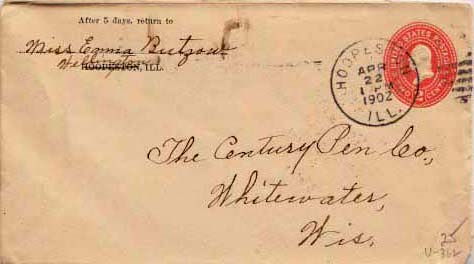 After 5 days, return to
Miss Emma Butzow
HOOPESTON, ILL.
HOOPESTON
APR
22
1 PM
1902
ILL.
UNITED STATES POSTAGE
CENTS
The Century Pen Co.,
Whitewater,
Wis.
25
U-362